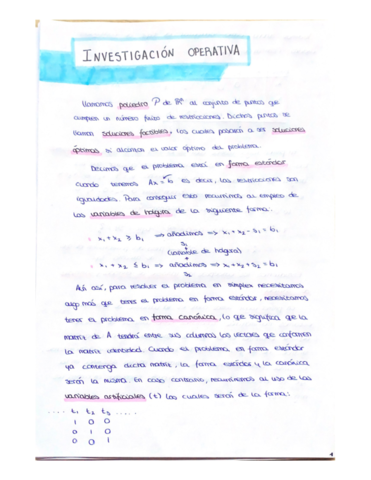 INVESTIGACIÓN OPERATIVA
Llamamos poliedro P de ℝⁿ al conjunto de puntos que
cumplen un número finito de restricciones. Dichos puntos se
llaman soluciones factibles, los cuales pasarán a ser soluciones
óptimas si alcanzan el valor óptimo del problema.
Decimos que el problema está en forma estándar
cuando tenemos Ax = b es decir, las restricciones son
igualdades. Para conseguir esto recurrimos al empleo de
las variables de holgura de la siguiente forma:
· x₁ + x₂ ≥ b₁ ⇒ añadimos ⇒ x₁ + x₂ - s₁ = b₁
s₁
(variable de holgura)
s₂
· x₁ + x₂ ≤ b₁ ⇒ añadimos ⇒ x₁ + x₂ + s₂ = b₁
Así así, para resolver el problema en simplex necesitamos
algo más que tener el problema en forma estándar, necesitamos
tener el problema en forma canónica, lo que significa que la
matriz de A tendrá entre sus columnas los vectores que conforman
la matriz identidad. Cuando el problema en forma estándar
ya contenga dicha matriz, la forma estándar y la canónica
serán la misma. En caso contrario, recurriremos al uso de las
variables artificiales (t) las cuales serán de la forma:
.... t₁ t₂ t₃ ....
1 0 0
0 1 0
0 0 1